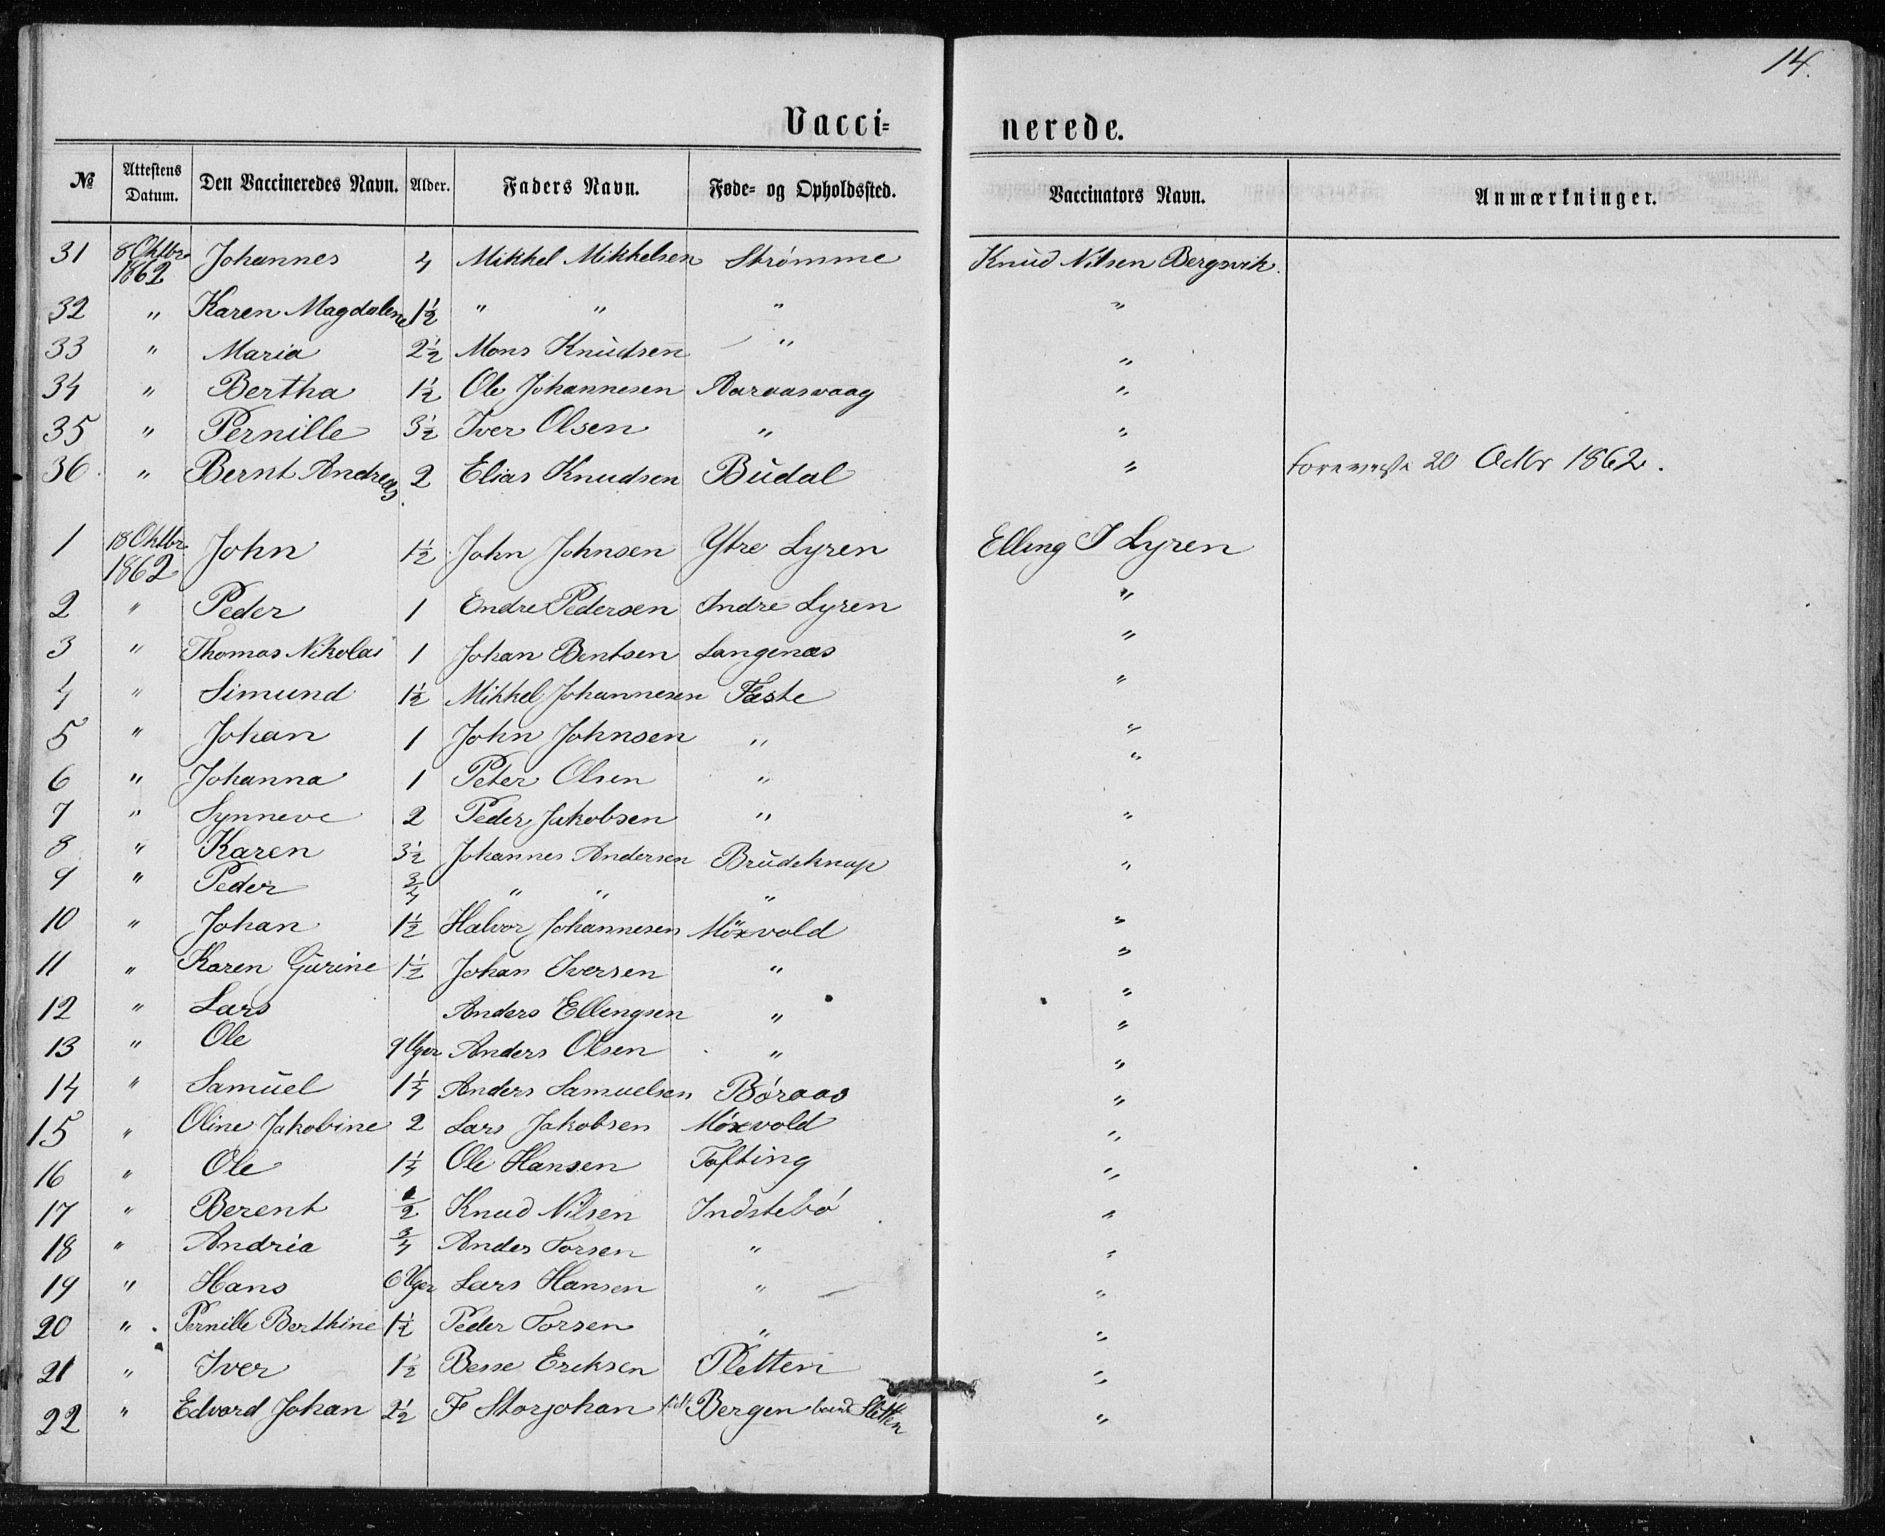 14.
Vaccinerede.
№ Attestens Datum. Den Vaccineredes Navn. Alder. Faders Navn. Føde- og Opholdssted. Vaccinators Navn. Anmærkninger.
31 8 Oktbr 1862 Johannes 4 Mikkel Mikkelsen Strømme Knud Nilsen Bergsvik.
32 " Karen Magdalene 1½ " " " "
33 " Maria 2½ Mons Knudsen " "
34 " Bertha 1½ Ole Johannesen Aaraasvaag "
35 " Pernille 3½ Iver Olsen " "
36. " Bernt Andreas 2 Elias Knudsen Budal " 20 Octbr 1862.
1 18 Oktbr. 1862 John 1½ John Johnsen Ytre Lyren Elling I Lyren
2 " Peder 1 Endre Pedersen Indre Lyren "
3 " Thomas Nikolai 1 Johan Bentsen Langenæs "
4 " Simund 1½ Mikkel Johannesen Fæste "
5 " Johan 1 John Johnsen " "
6 " Johanna 1 Peter Olsen " "
7 " Synneve 2 Peder Jakobsen " "
8 " Karen 3½ Johannes Andersen Brudeknap "
9 " Peder ¾ " " "
10 " Johan 1½ Halvor Johannesen Møxvold "
11 " Karen Gurine 1½ Johan Iversen " "
12 " Lars Anders Ellingsen " "
13 " Ole 9 Uger Anders Olsen " "
14 " Samuel 1¼ Anders Samuelsen Børaas "
15 " Oline Jakobine 2 Lars Jakobsen Møxvold "
16 " Ole 1¼ Ole Hansen Tofting "
17 " Berent ½ Knud Nilsen Indstebø "
18 " Andria ¾ Anders Torsen " "
19 " Hans 6 Uger Lars Hansen " "
20 " Pernille Berthine 1½ Peder Torsen " "
21 " Iver 1½ Besse Eriksen Pletten "
22 " Edvard Johan 2½ F Storjohan Bergen Sletten "